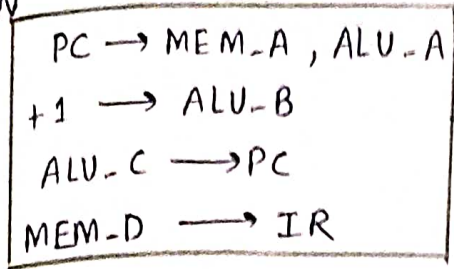 PC → MEM_A , ALU_A
+1 → ALU_B
ALU_C → PC
MEM_D → IR